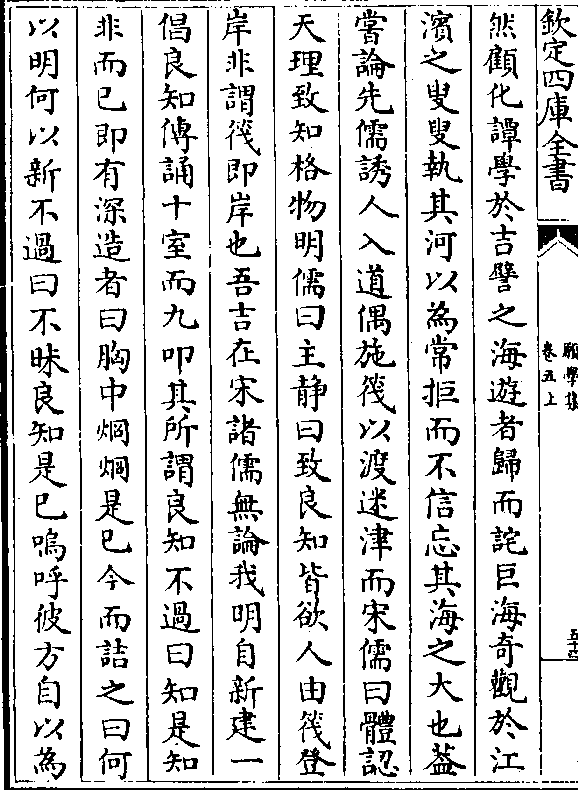 欽定四庫全書
願學集
卷五上
然顧化譚學於吉譬之海遊者歸而詫巨海奇觀於江
濱之叟叟執其河以為常拒而不信忘其海之大也葢
嘗論先儒誘人入道偶施筏以渡迷津而宋儒曰體認
天理致知格物明儒曰主静曰致良知皆欲人由筏登
岸非謂筏即岸也吾吉在宋諸儒無論我明自新建一
倡良知傳誦十室而九叩其所謂良知不過曰知是知
非而已即有深造者曰胸中烱烱是已今而詰之曰何
以明何以新不過曰不昧良知是已嗚呼彼方自以為